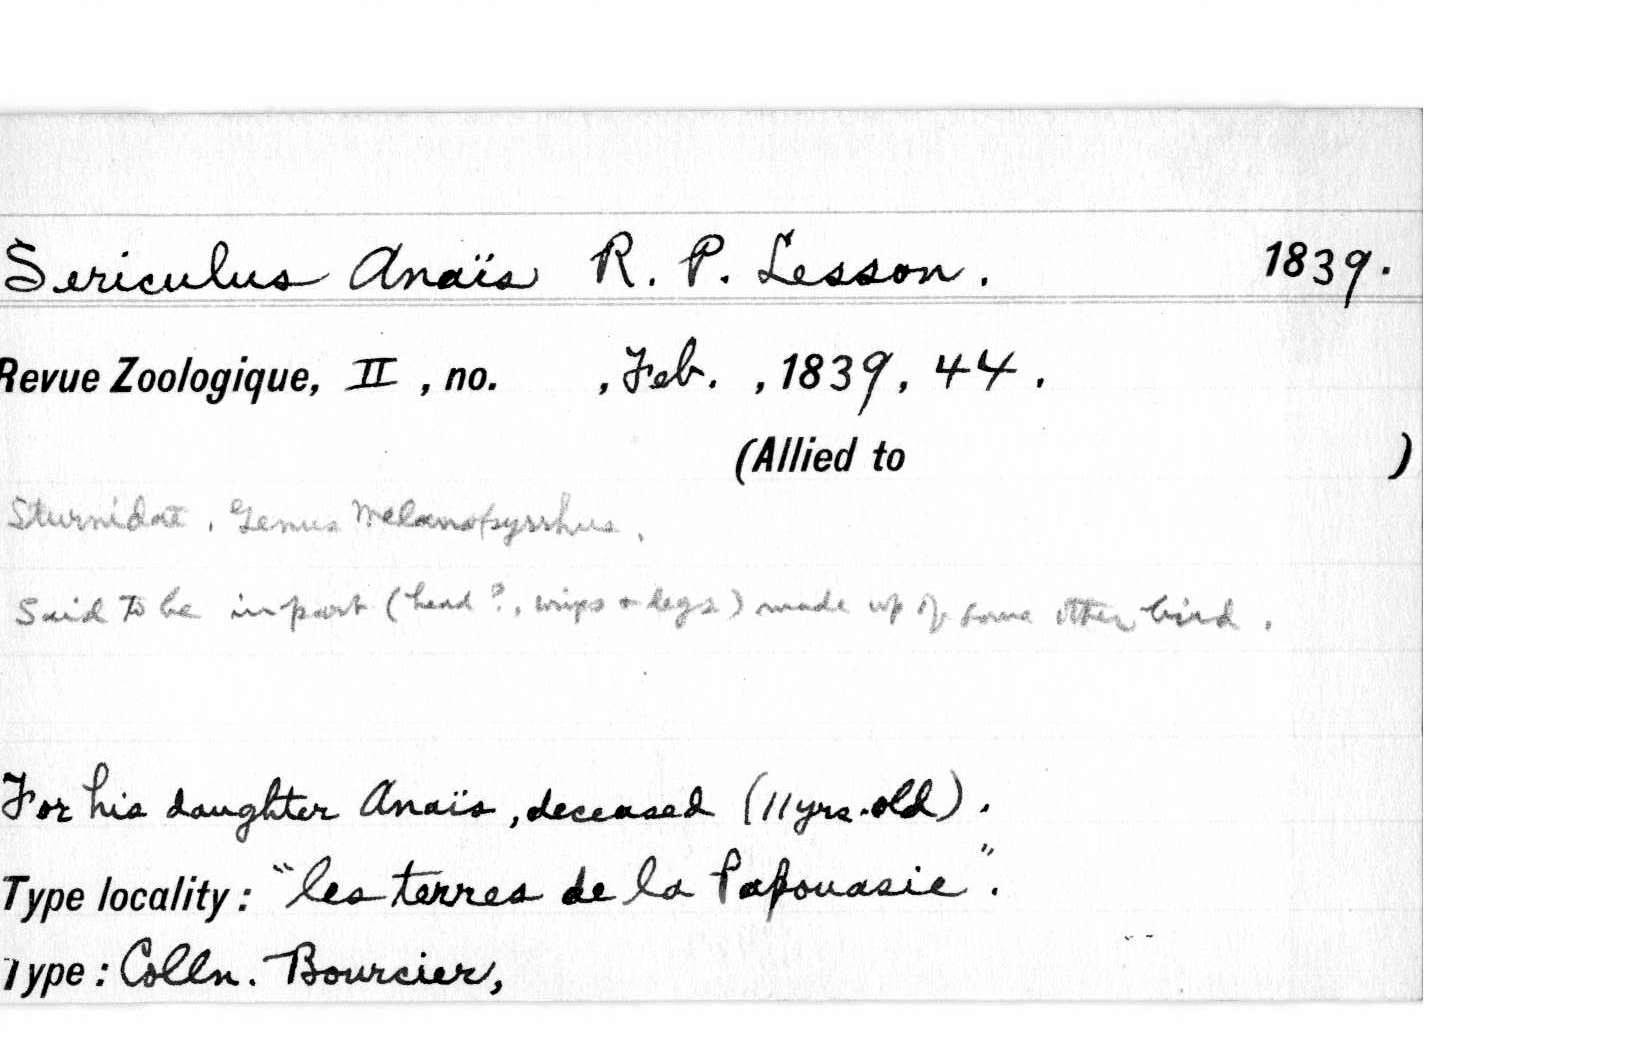 Sericulus Anaïs R. P. Lesson. 1839.
Revue Zoologique, II, no. , Feb. , 1839, 44.
(Allied to )
Sturnidae, Genus Melanopyrrhus.
Said to be in part (head?, wings + legs) made up of some other bird.
For his daughter Anaïs, deceased (11 yrs. old).
Type locality: "les terres de la Papouasie".
Type: Colln. Bourcier,